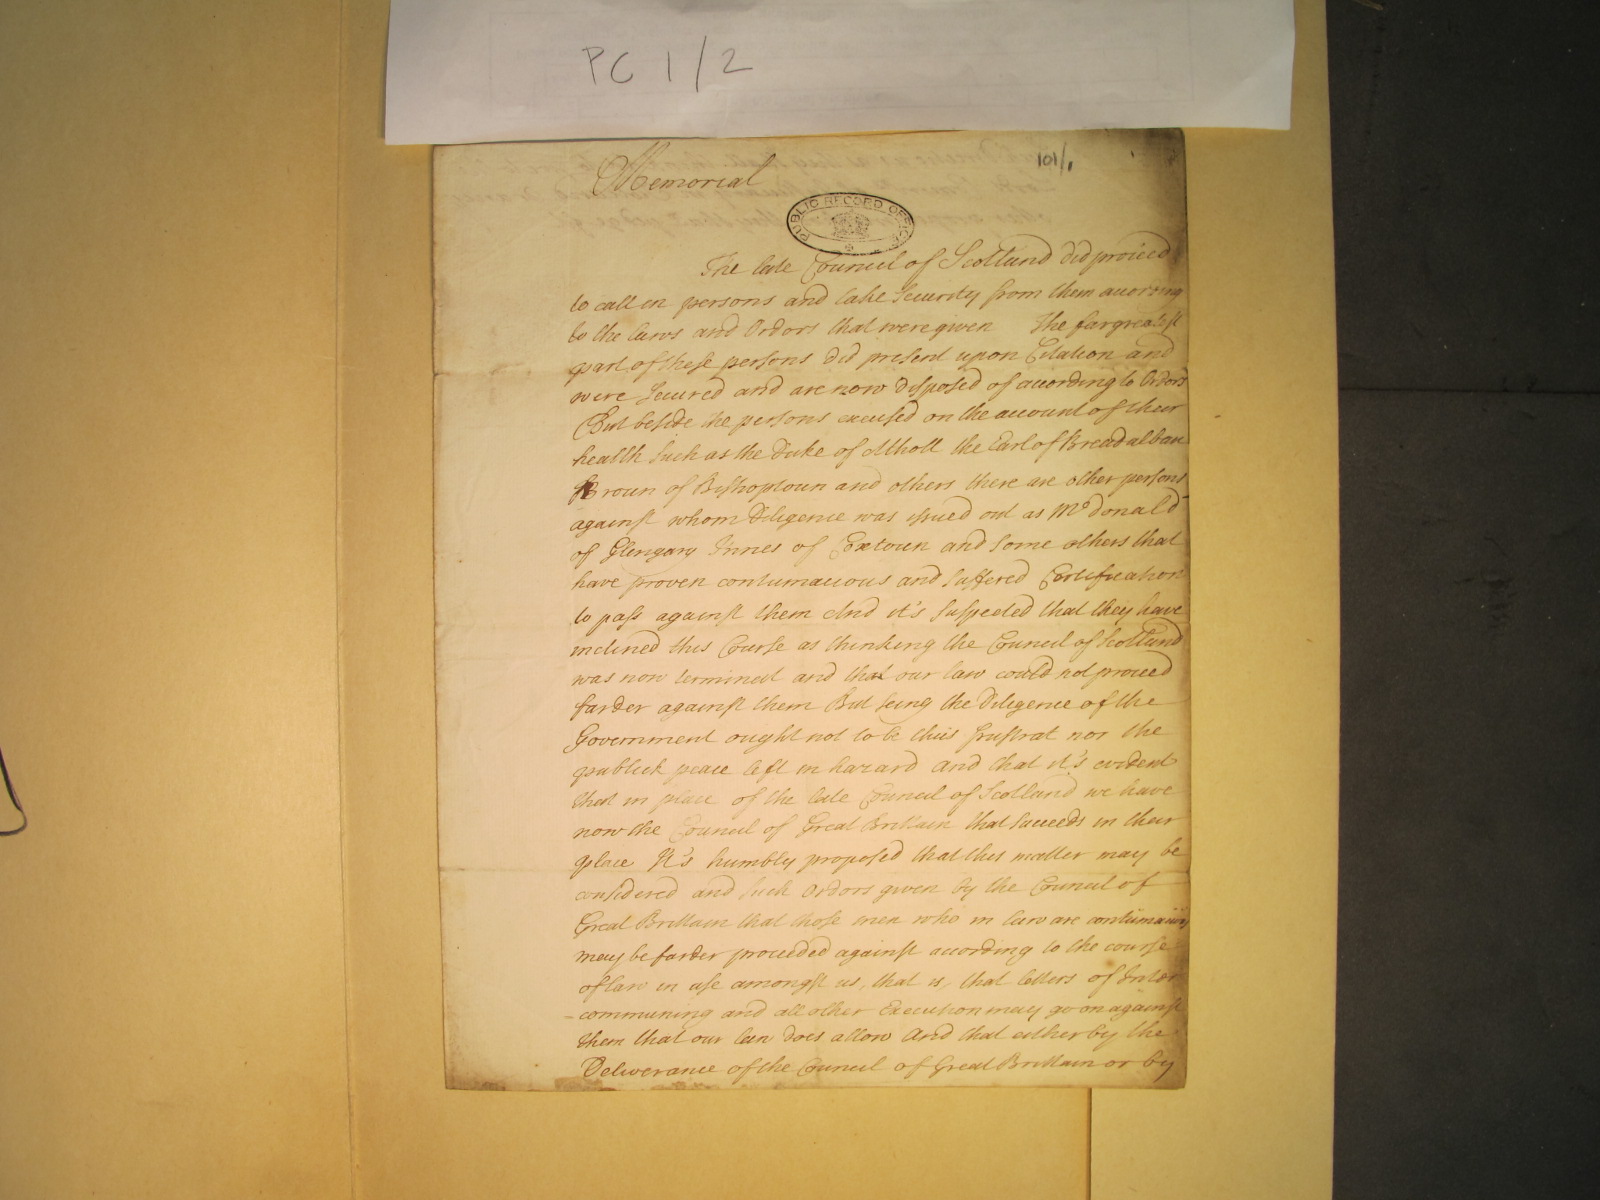 PC 1/2
101/1
Memorial
PUBLIC RECORD OFFICE
The late Councel of Scotland did proceed
to call in persons and take Security from them according
to the laws and Ordors that were given The far greatest
part of these persons did present upon Citation and
were Secured and are now disposed of according to Ordors
But beside the persons excused on the account of their
health Such as the Duke of Atholl the Earl of Breadalban
Broun of Bishoptoun and others there are other persons
against whom Diligence was issued out as Mcdonald
of Glengary Innes of Coxtoun and Some others that
have proven contumacious and Suffered Certification
to pass against them And it's Suspected that they have
inclined this Course as thinking the Councel of Scotland
was now terminat and that our law could not proceed
farder against them But Seing the Diligence of the
Government ought not to be thus frustrat nor the
publick peace left in hazard and that it's evident
that in place of the late Councel of Scotland we have
now the Councel of Great Brittain that Succeeds in their
place It's humbly proposed that this matter may be
considered and Such Ordors given by the Councel of
Great Brittain that those men who in law are contumacious
may be farder proceeded against according to the course
of law in use amongst us, that is, that letters of Inter
communing and all other Execution may go on against
them that our law does allow And that either by the
Deliverance of the Councel of Great Brittain or by